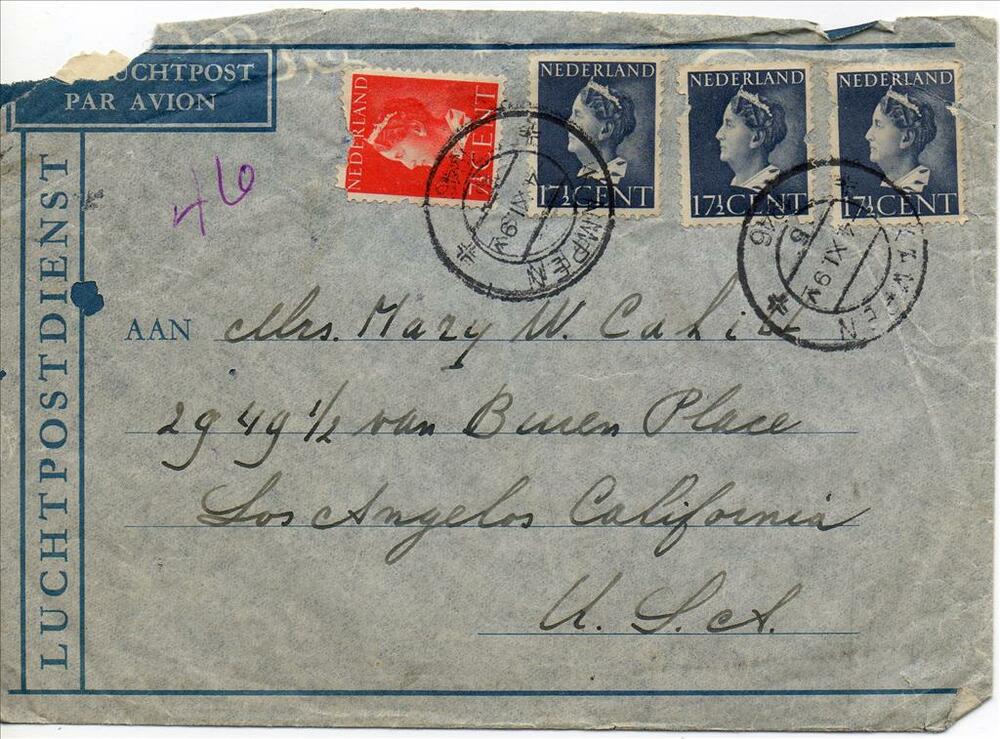 LUCHTPOST
PAR AVION
LUCHTPOSTDIENST
46
NEDERLAND
7½ CENT
NEDERLAND
17½ CENT
NEDERLAND
17½ CENT
NEDERLAND
17½ CENT
KAMPEN
4 XI
KAMPEN
4 XI
AAN Mrs. Mary W. Cahill
2949 1/2 van Buren Place
Los Angelos California
U. S. A.